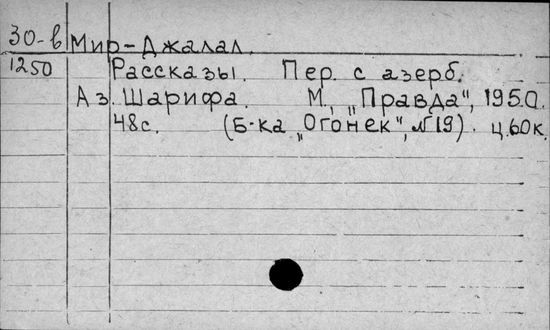 30-в Мир-Джалал.
1250 Рассказы. Пер. с азерб.
Аз. Шарифа. М., „Правда", 1950.
48с. (Б-ка „Огонек", №19). ц. 60к.